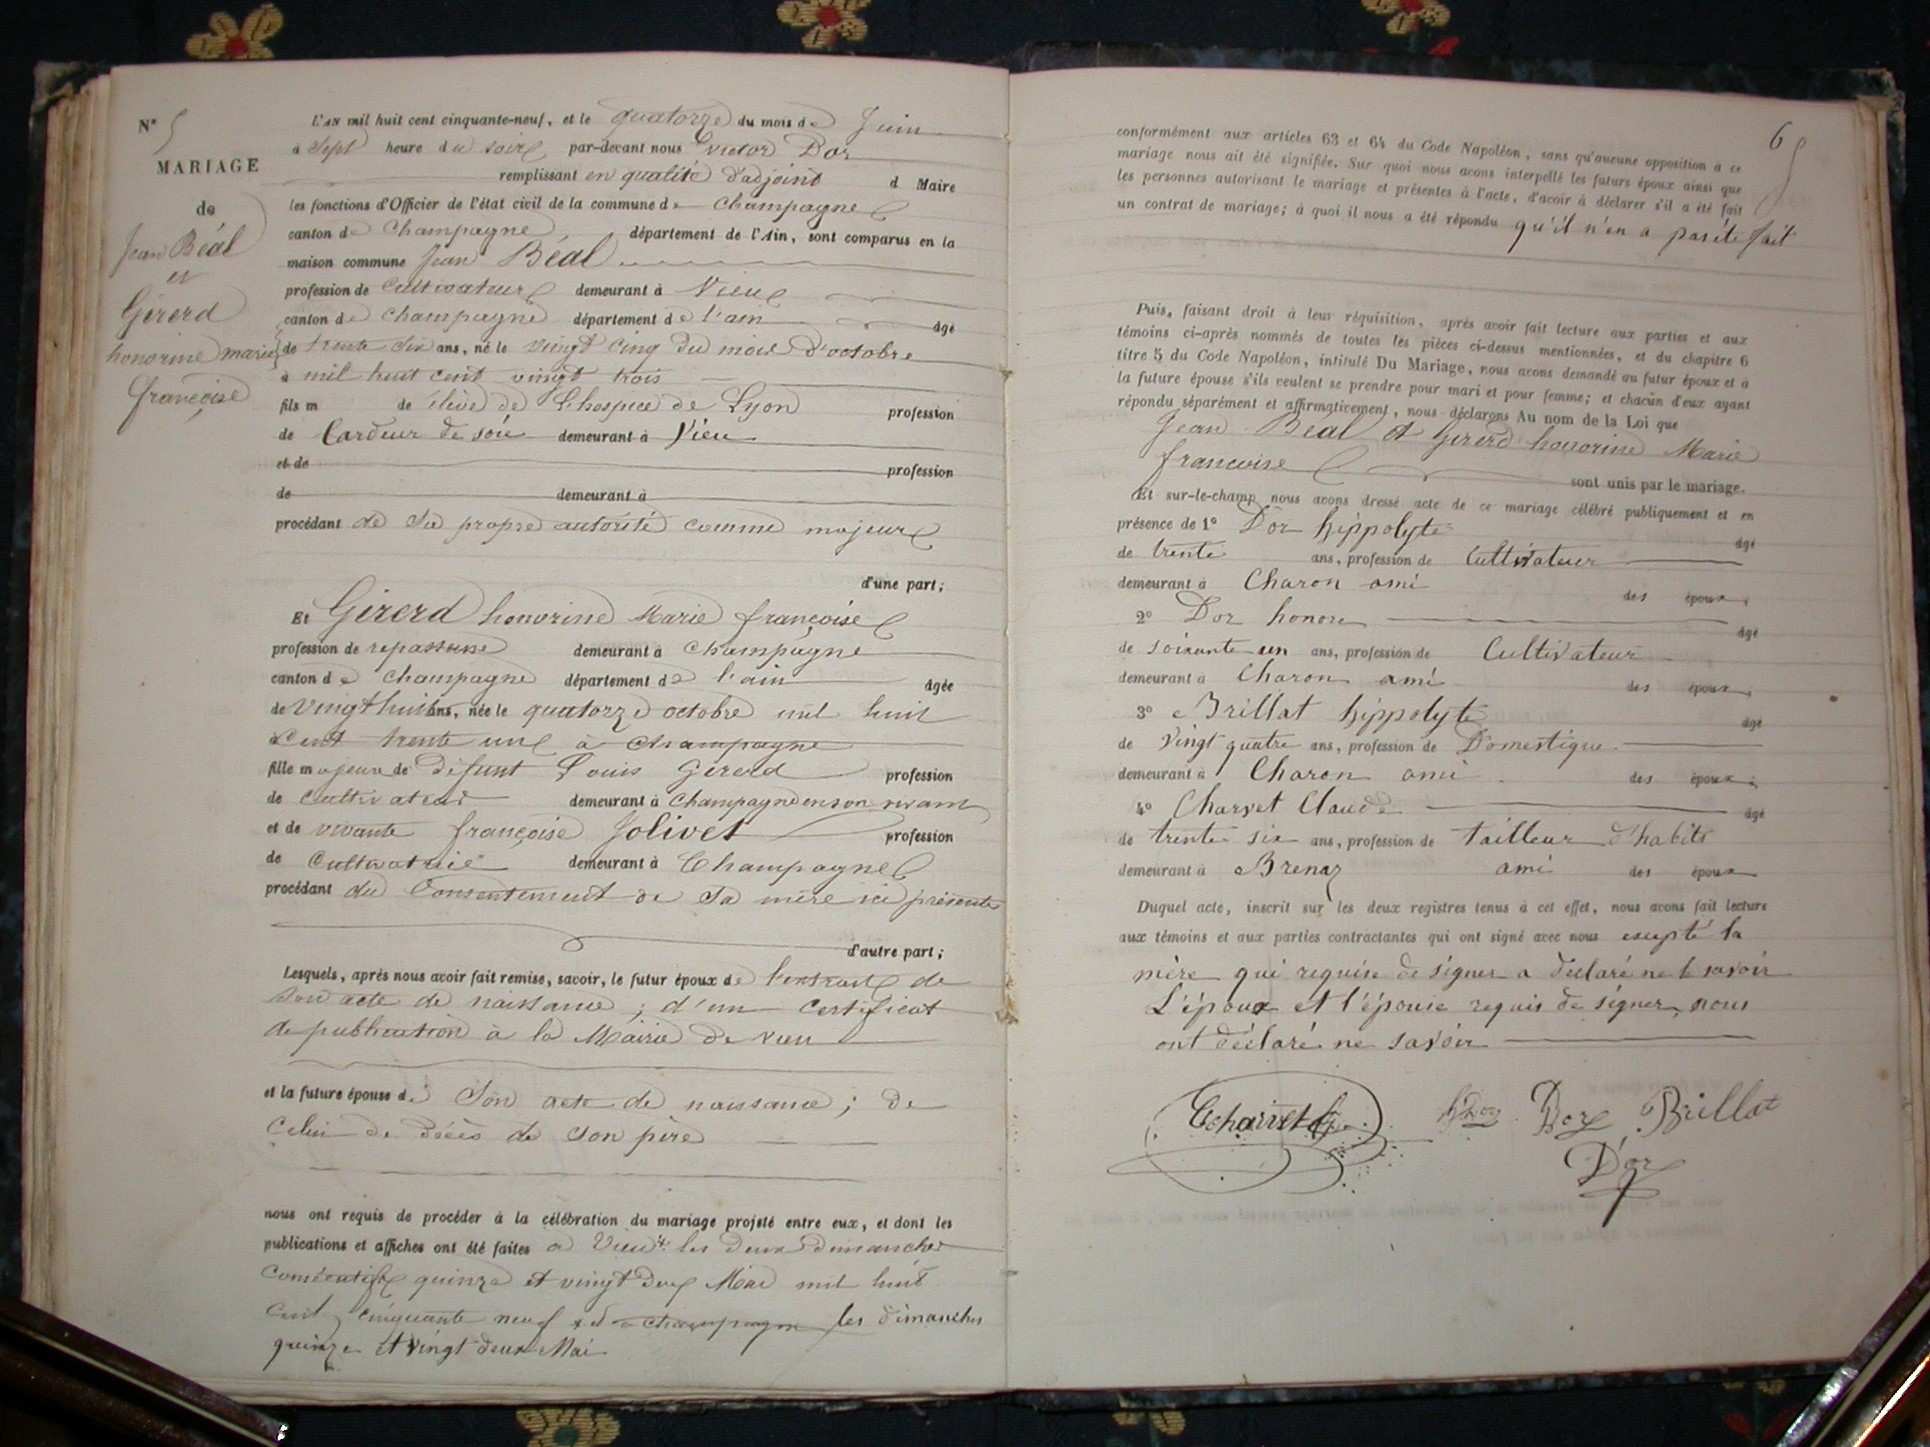 N° 5
MARIAGE
de
Jean Béal
et
Girerd
honorine marie
françoise
L'AN mil huit cent cinquante-neuf, et le quatorze du mois de Juin
à Sept heure du soir par-devant nous Victor Dor
remplissant en qualité d'adjoint d Maire
les fonctions d'Officier de l'état civil de la commune de Champagne
canton de Champagne département de l'Ain, sont comparus en la
maison commune Jean Béal
profession de Cultivateur demeurant à Vieu
canton de Champagne département de l'ain âgé
de trente six ans, né le vingt cinq du mois d'octobre
à mil huit cent vingt trois
fils m de élève de L'hospice de Lyon profession
de Cardeur de soie demeurant à Vieu
et de profession
de demeurant à
procédant de sa propre autorité comme majeur
d'une part;
Et Girerd honorine Marie françoise
profession de repasseuse demeurant à Champagne
canton de Champagne département de l'ain âgée
de vingt huit ans, née le quatorze octobre mil huit
à cent trente un à Champagne
fille majeure de défunt Louis Girerd profession
de cultivateur demeurant à Champagne en son vivant
et de vivante françoise Jolivet profession
de Cultivatrice demeurant à Champagne
procédant du Consentement de Sa mère ici présente
d'autre part;
Lesquels, après nous avoir fait remise, savoir, le futur époux de l'extrait de
son acte de naissance; d'un certificat
de publication à la Mairie de vieu
et la future épouse de Son acte de naissance; de
Celui de décès de son père
nous ont requis de procéder à la célébration du mariage projeté entre eux, et dont les
publications et affiches ont été faites a Vieu les deux dimanches
consécutifs quinze et vingt deux Mai mil huit
cent cinquante neuf et a champagne les dimanches
quinze et vingt deux Mai
6
conformément aux articles 63 et 64 du Code Napoléon, sans qu'aucune opposition à ce
mariage nous ait été signifiée. Sur quoi nous avons interpellé les futurs époux ainsi que
les personnes autorisant le mariage et présentes à l'acte, d'avoir à déclarer s'il a été fait
un contrat de mariage; à quoi il nous a été répondu qu'il n'en a pas été fait
Puis, faisant droit à leur réquisition, après avoir fait lecture aux parties et aux
témoins ci-après nommés de toutes les pièces ci-dessus mentionnées, et du chapitre 6
titre 5 du Code Napoléon, intitulé Du Mariage, nous avons demandé au futur époux et à
la future épouse s'ils veulent se prendre pour mari et pour femme; et chacun d'eux ayant
répondu séparément et affirmativement, nous déclarons Au nom de la Loi que
Jean Béal et Girerd honorine Marie
francoise sont unis par le mariage.
Et sur-le-champ nous avons dressé acte de ce mariage célébré publiquement et en
présence de 1° Dor hippolyte âgé
de trente ans, profession de Cultivateur
demeurant à Charon ami des époux,
2° Dor honoré âgé
de soixante un ans, profession de Cultivateur
demeurant à Charon ami des époux,
3° Brillat hippolyte âgé
de vingt quatre ans, profession de Domestique
demeurant à Charon ami des époux,
4° Charvet Claude âgé
de trente six ans, profession de tailleur d'habits
demeurant à Brenaz ami des époux
Duquel acte, inscrit sur les deux registres tenus à cet effet, nous avons fait lecture
aux témoins et aux parties contractantes qui ont signé avec nous excepté la
mère qui requise de signer a déclaré ne l savoir
L'époux et l'épouse requis de signer nous
ont déclaré ne savoir
Charvet hDor Dor Brillat
Dor